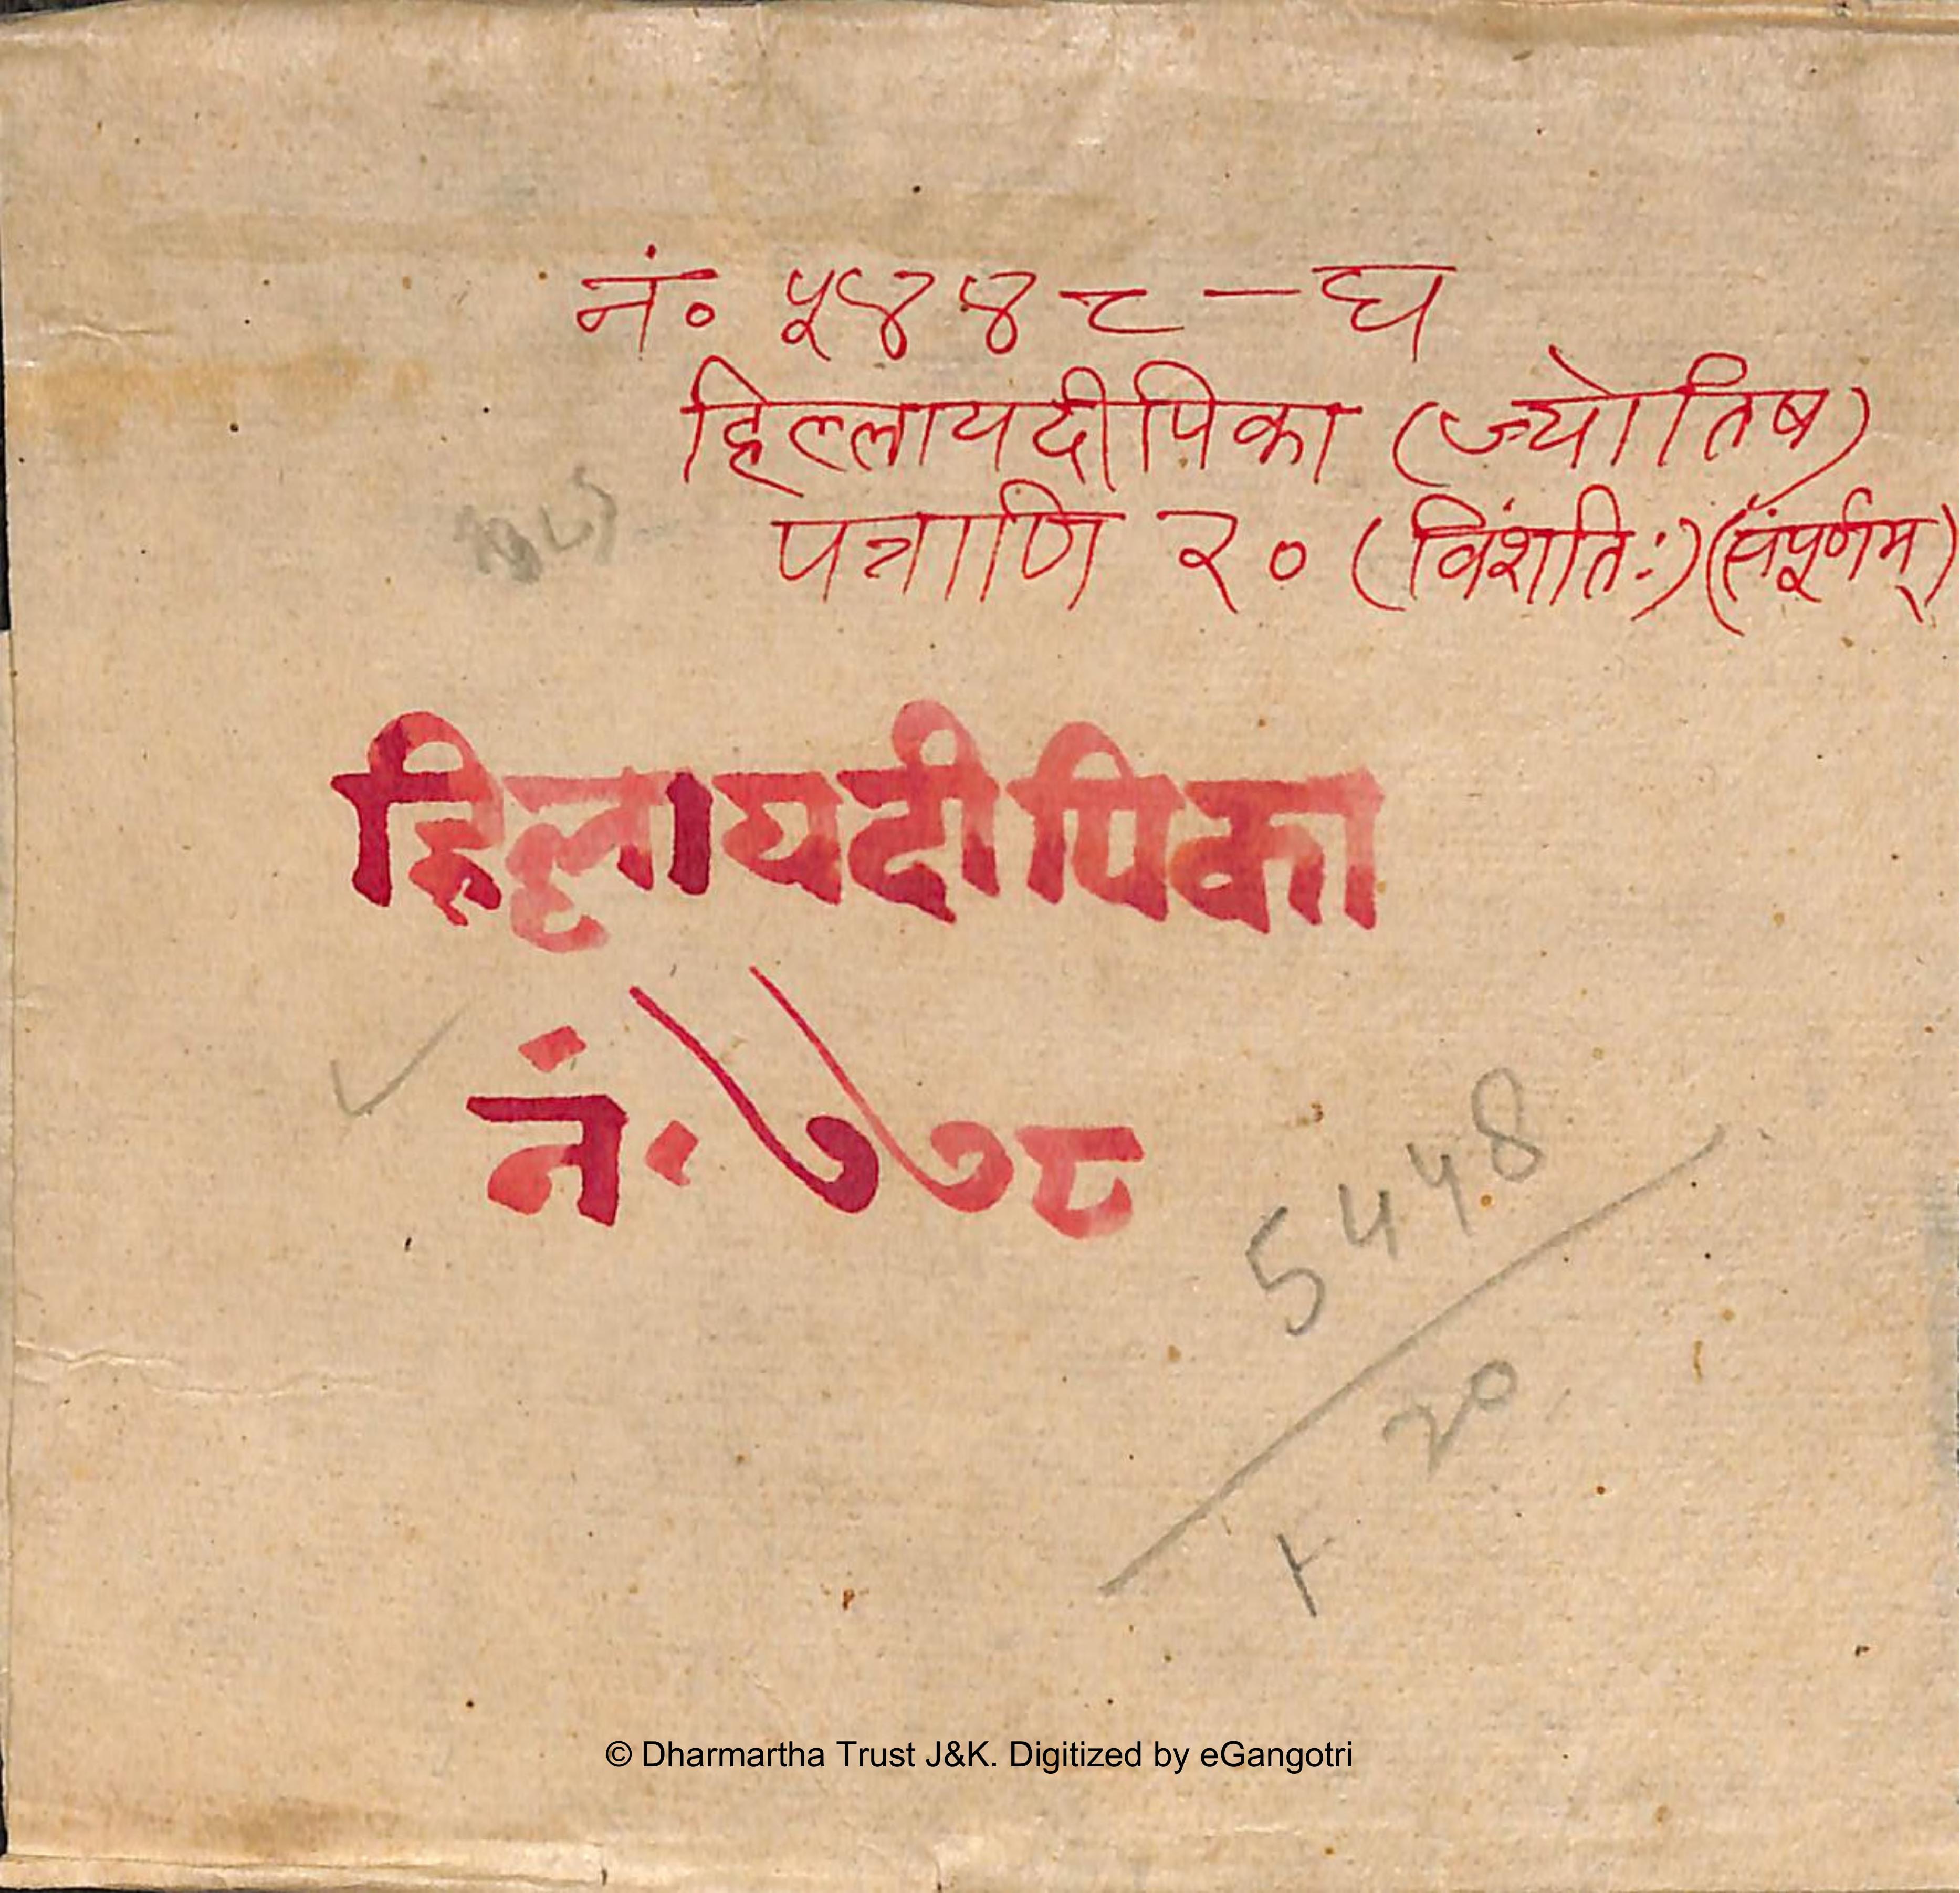 नं० ५४४८ - घ
हिल्लायदीपिका (ज्योतिष)
पत्राणि २० (विंशतिः) (संपूर्णम्)
हिल्लायदीपिका
नं. ७७८
5448
20
© Dharmartha Trust J&K. Digitized by eGangotri